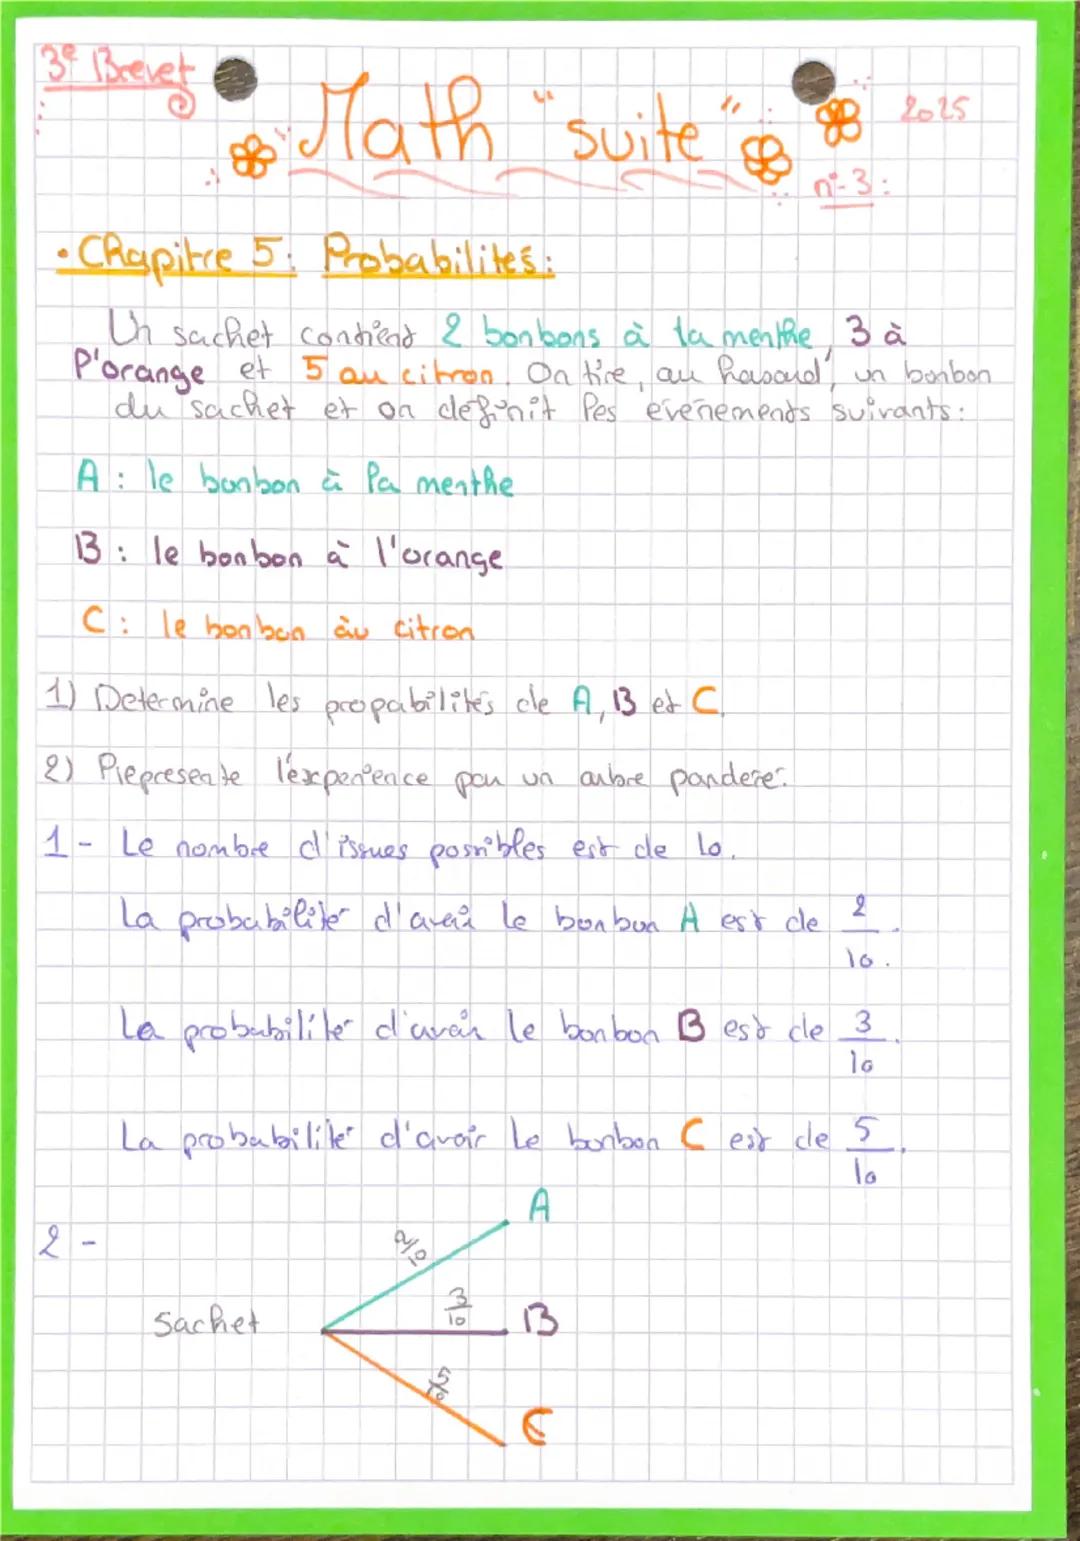 3e Brevet
Math "suite"
2025
n°-3:
• Chapitre 5: Probabilités:
Un sachet contient 2 bonbons à la menthe, 3 à
l'orange et 5 au citron. On tire, au hasard, un bonbon
du sachet et on définit les évenements suivants:
A: le bonbon à la menthe
B: le bonbon à l'orange
C: le bonbon àu citron
1) Determine les propabilités de A, B et C.
2) Represente l'experience par un arbre pandere.
1- Le nombre d'issues possibles est de 10.
La probabiliter d'avoir le bonbon A est de 2/10.
La probabiliter d'avoir le bonbon B est de 3/10.
La probabiliter d'avoir le bonbon C est de 5/10.
2-
A
2/10
Sachet
3/10
B
5/10
C